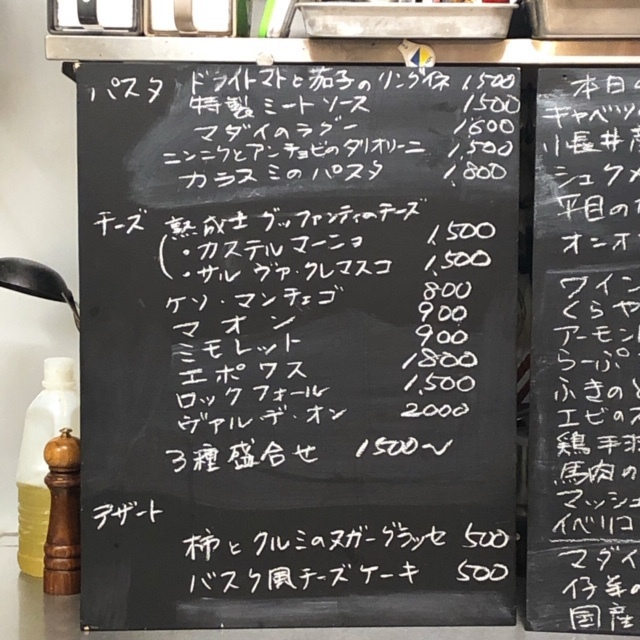 パスタ ドライトマトと茄子のリングイネ 1,500
特製ミートソース 1500
マダイのラグー 1,600
ニンニクとアンチョビのタリオリーニ 1,500
カラスミのパスタ 1,800
チーズ 熟成士グッファンティのチーズ
・カステルマーニョ 1,500
・サルヴァ・クレマスコ 1,500
ケソ・マンチェゴ 800
マオン 900
ミモレット 900
エポワス 1800
ロックフォール 1,500
ヴァルデ・オン 2000
3種盛合せ 1500〜
デザート
柿とクルミのヌガーグラッセ 500
バスク風チーズケーキ 500
本日
キャベツ
小長井産
シュクメ
平目の
オニオ
ワイン
くらや
アーモン
らーぷ
ふきの
エビの
鶏手羽
馬肉の
マッシュ
イベリコ
マダイ
仔羊の
国産